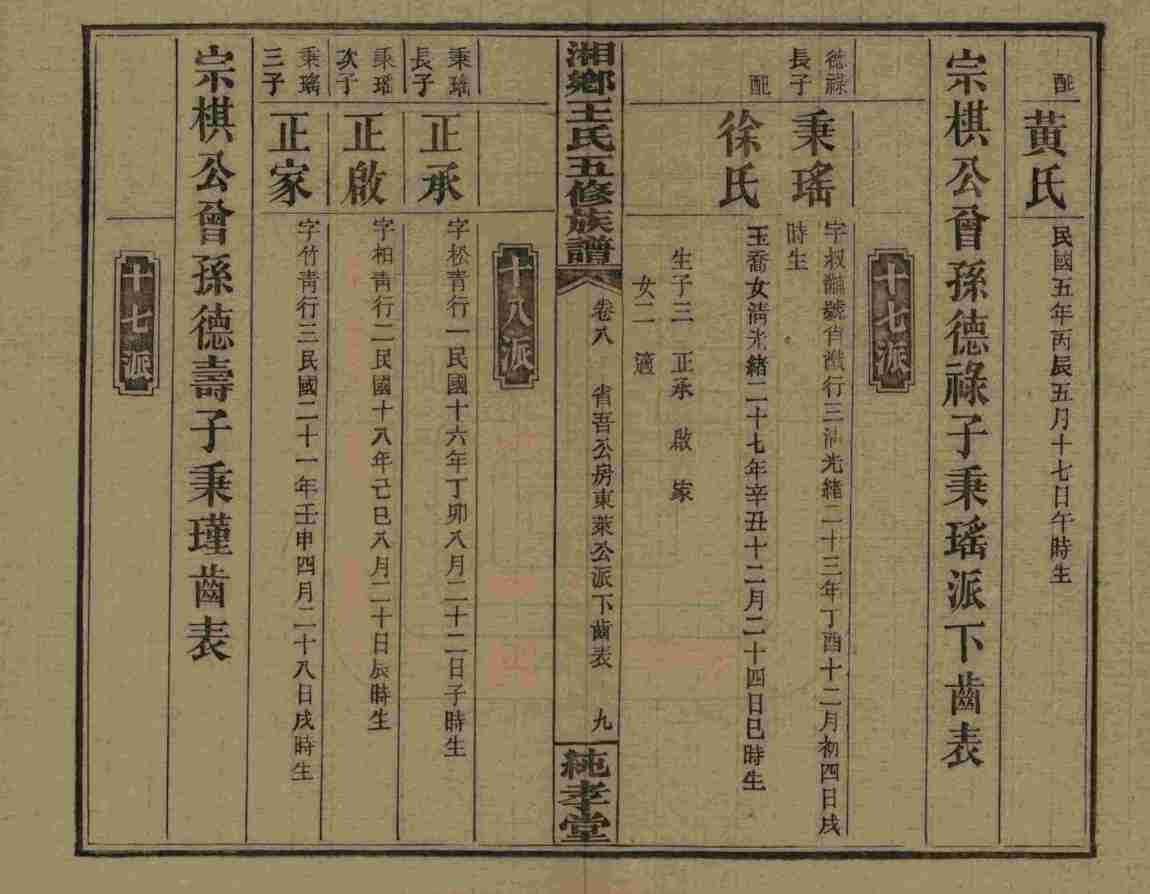 配
黃氏
民國五年丙辰五月十七日午時生
宗棋公曾孫德祿子秉瑤派下齒表
十七派
德祿
長子
秉瑤
字叔 號肖 行三清光緒二十三年丁酉十二月初四日戌
時生
配
徐氏
玉喬女清光緒二十七年辛丑十二月二十四日巳時生
生子三 正承 啟 家
女二 適
湘鄉王氏五修族譜
卷八 省吾公房東萊公派下齒表 九
純孝堂
十八派
秉瑤
長子
正承
字松青行一民國十六年丁卯八月二十二日子時生
秉瑤
次子
正啟
字柏青行二民國十八年己巳八月二十日辰時生
秉瑤
三子
正家
字竹青行三民國二十一年壬申四月二十八日戌時生
宗棋公曾孫德壽子秉瑾齒表
十七派